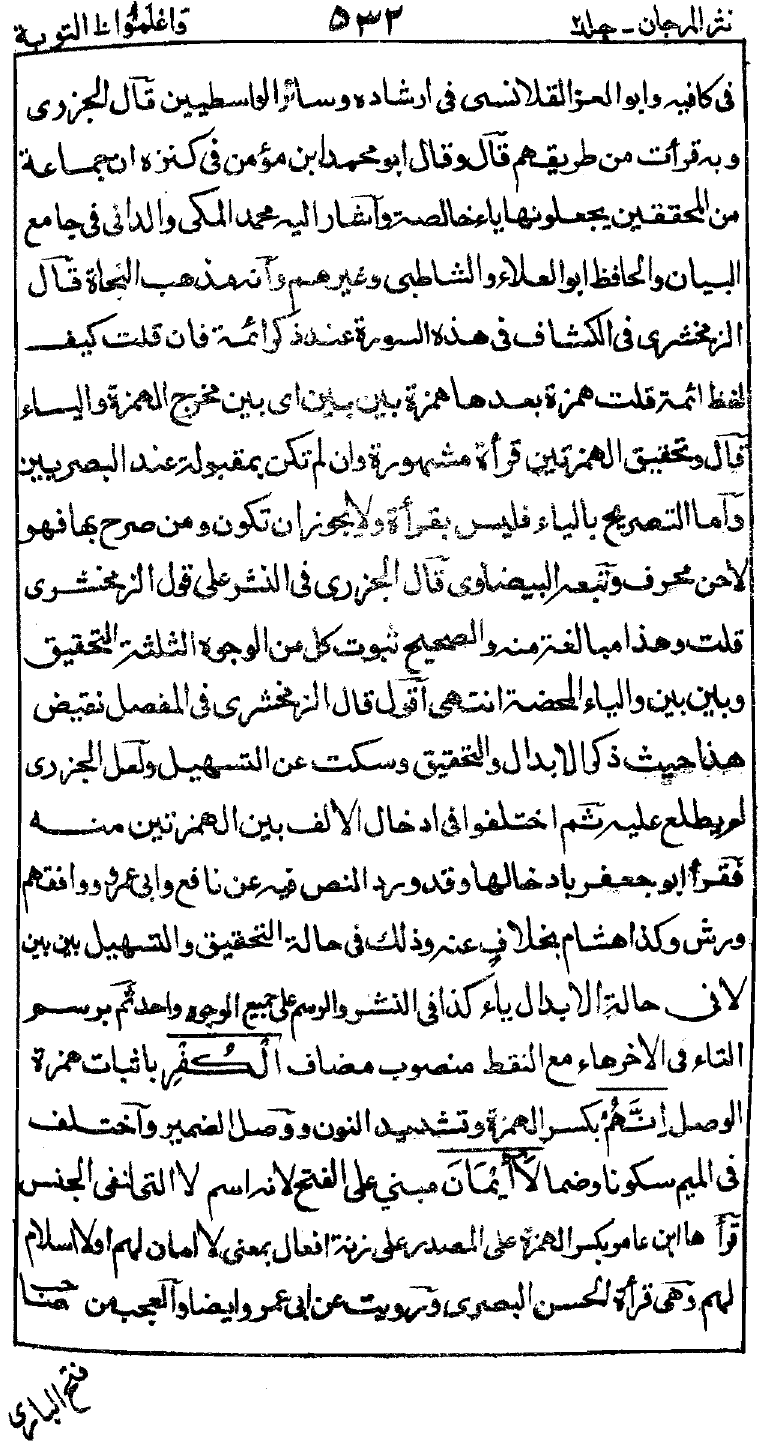 نثر المرجان - جلد٢ ٥٣٢ واعلموا ١٠ التوبة
فى كافيه وابو العز القلانسى فى ارشاده وسائر الواسطيين قال الجزرى
وبه قرأت من طريقهم قال وقال ابو محمد ابن مؤمن فى كنزه ان جماعة
من المحققين يجعلونها ياء خالصة واشار اليه محمد المكى والدانى فى جامع
البيان والحافظ ابو العلاء والشاطبى وغيرهم وأنه مذهب النحاة قال
الزمخشرى فى الكشاف فى هذه السورة عند ذكر ائمة فان قلت كيف
لفظ ائمة قلت همزة بعدها همزة بين بين اى بين مخرج الهمزة والياء
قال وتحقيق الهمزتين قرأة مشهورة وان لم تكن بمقبولة عند البصريين
وأما التصريح بالياء فليس بقرأة ولا يجوز ان تكون ومن صرح بها فهو
لاحن محرف وتبعه البيضاوى قال الجزرى فى النشر على قول الزمخشرى
قلت وهذا مبالغة منه والصحيح ثبوت كل من الوجوه الثلثة التحقيق
وبين بين والياء المحضة انتهى أقول قال الزمخشرى فى المفصل نقيض
هذا حيث ذكر الابدال والتحقيق وسكت عن التسهيل ولعل الجزرى
لم يطلع عليه ثم اختلفوا فى ادخال الالف بين الهمزتين منه
فقرأ ابو جعفر بادخالها وقد ورد النص فيه عن نافع وابى عمرو ووافقهم
ورش وكذا هشام بخلاف عنه وذلك فى حالة التحقيق والتسهيل بين بين
لا فى حالة الابدال ياء كذا فى النشر والرسم على جميع الوجوه واحد ثم برسم
التاء فى الاخر هاء مع النقط منصوب مضاف الْكُفْرِ باثبات همزة
الوصل اِنَّهُمْ بكسر الهمزة وتشديد النون ووصل الضمير واختلف
فى الميم سكونا وضما لَا أَيْمَانَ مبني على الفتح لانه اسم لا التى لنفى الجنس
قرأها ابن عامر بكسر الهمزة على المصدر على زنة افعال بمعنى لا امان لهم اولا اسلام
لهم وهى قرأة الحسن البصرى ورويت عن ابى عمرو ايضا والعجب من صاحب
فتح البارى